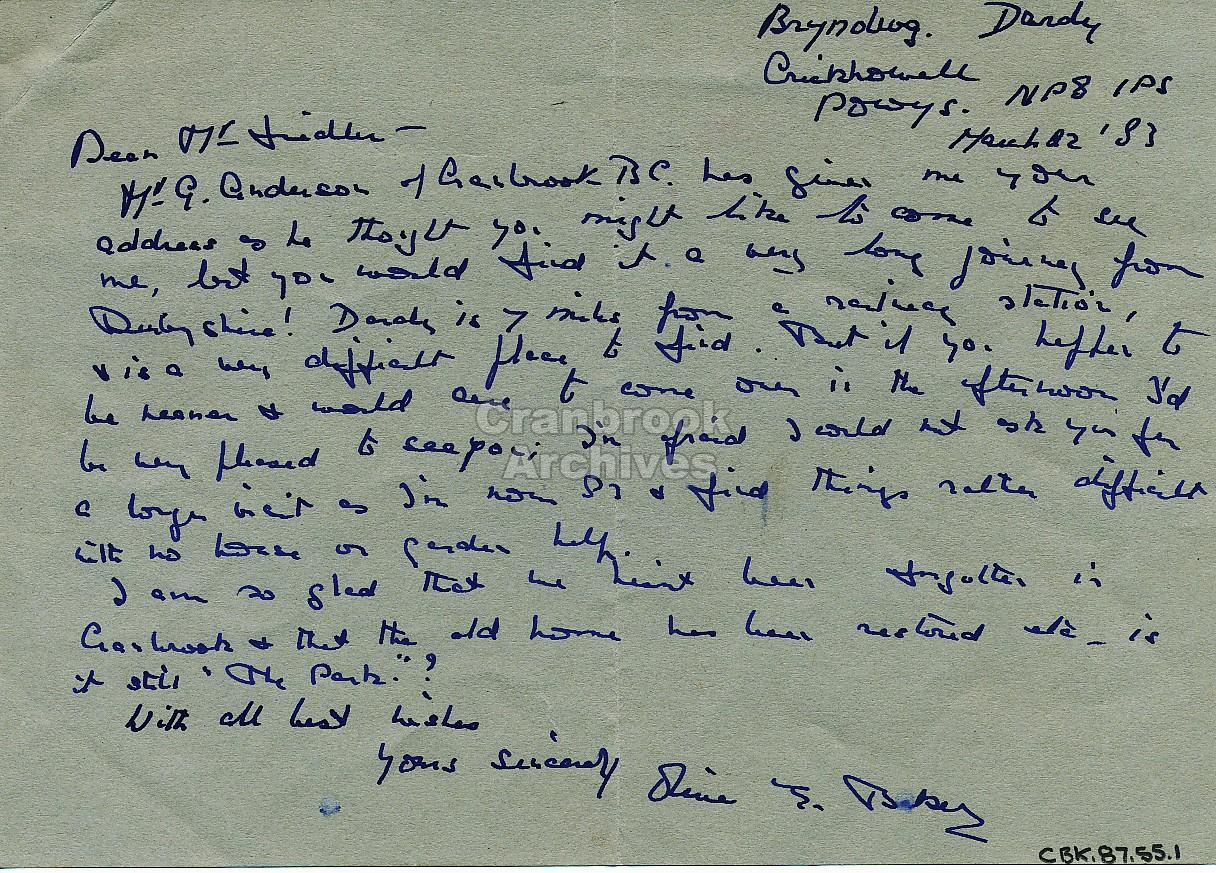 Bryndwg. Dardy
Crickhowell
Powys. NP8 1PS
March 22 '83
Dear Mr Fiedler —
Mr G. Anderson of Cranbrook B.C. has given me your
address as he thought you might like to come to see
me, but you would find it a very long journey from
Derbyshire! Dardy is 7 miles from a railway station,
& is a very difficult place to find. But if you happen to
be nearer & would care to come over in the afternoon I'd
be very pleased to see you; I'm afraid I could not ask you for
a longer visit as I'm now 83 & find things rather difficult
with no house or garden help.
I am so glad that we haven't been forgotten in
Cranbrook & that the old home has been restored etc – is
it still "The Park."?
With all best wishes
Yours sincerely
E. Baker
Cranbrook
Archives
CBK.87.55.1